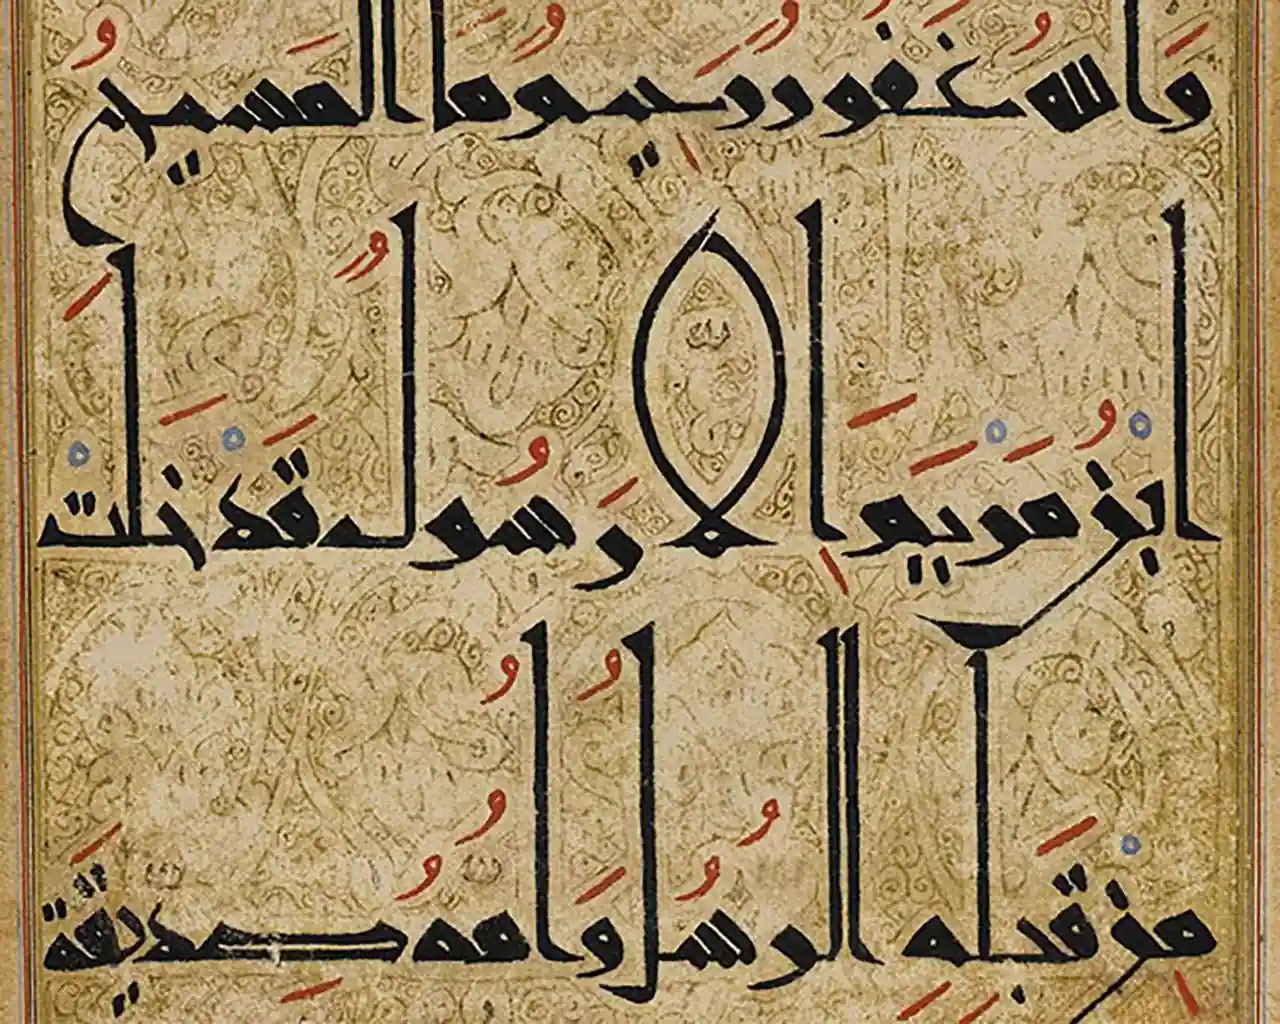 والله غفور رحيم ما المسيح
ابن مريم الا رسول قد خلت
من قبله الرسل وامه صديقة